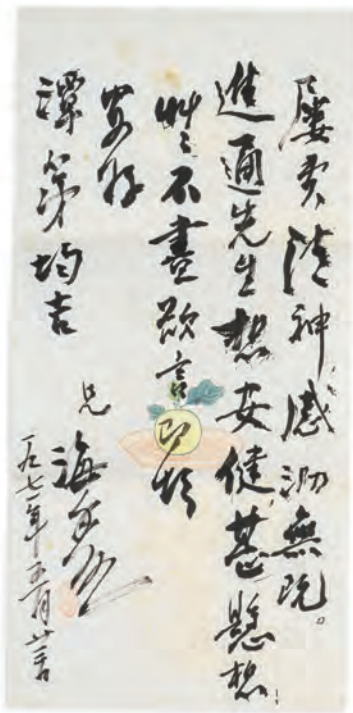 屡费清神，感泐無既。
進通先生想安健，甚懸想！
艸艸不盡欲言，即頌
安好
潭第均吉
兄
海粟
一九七一年五月廿二日